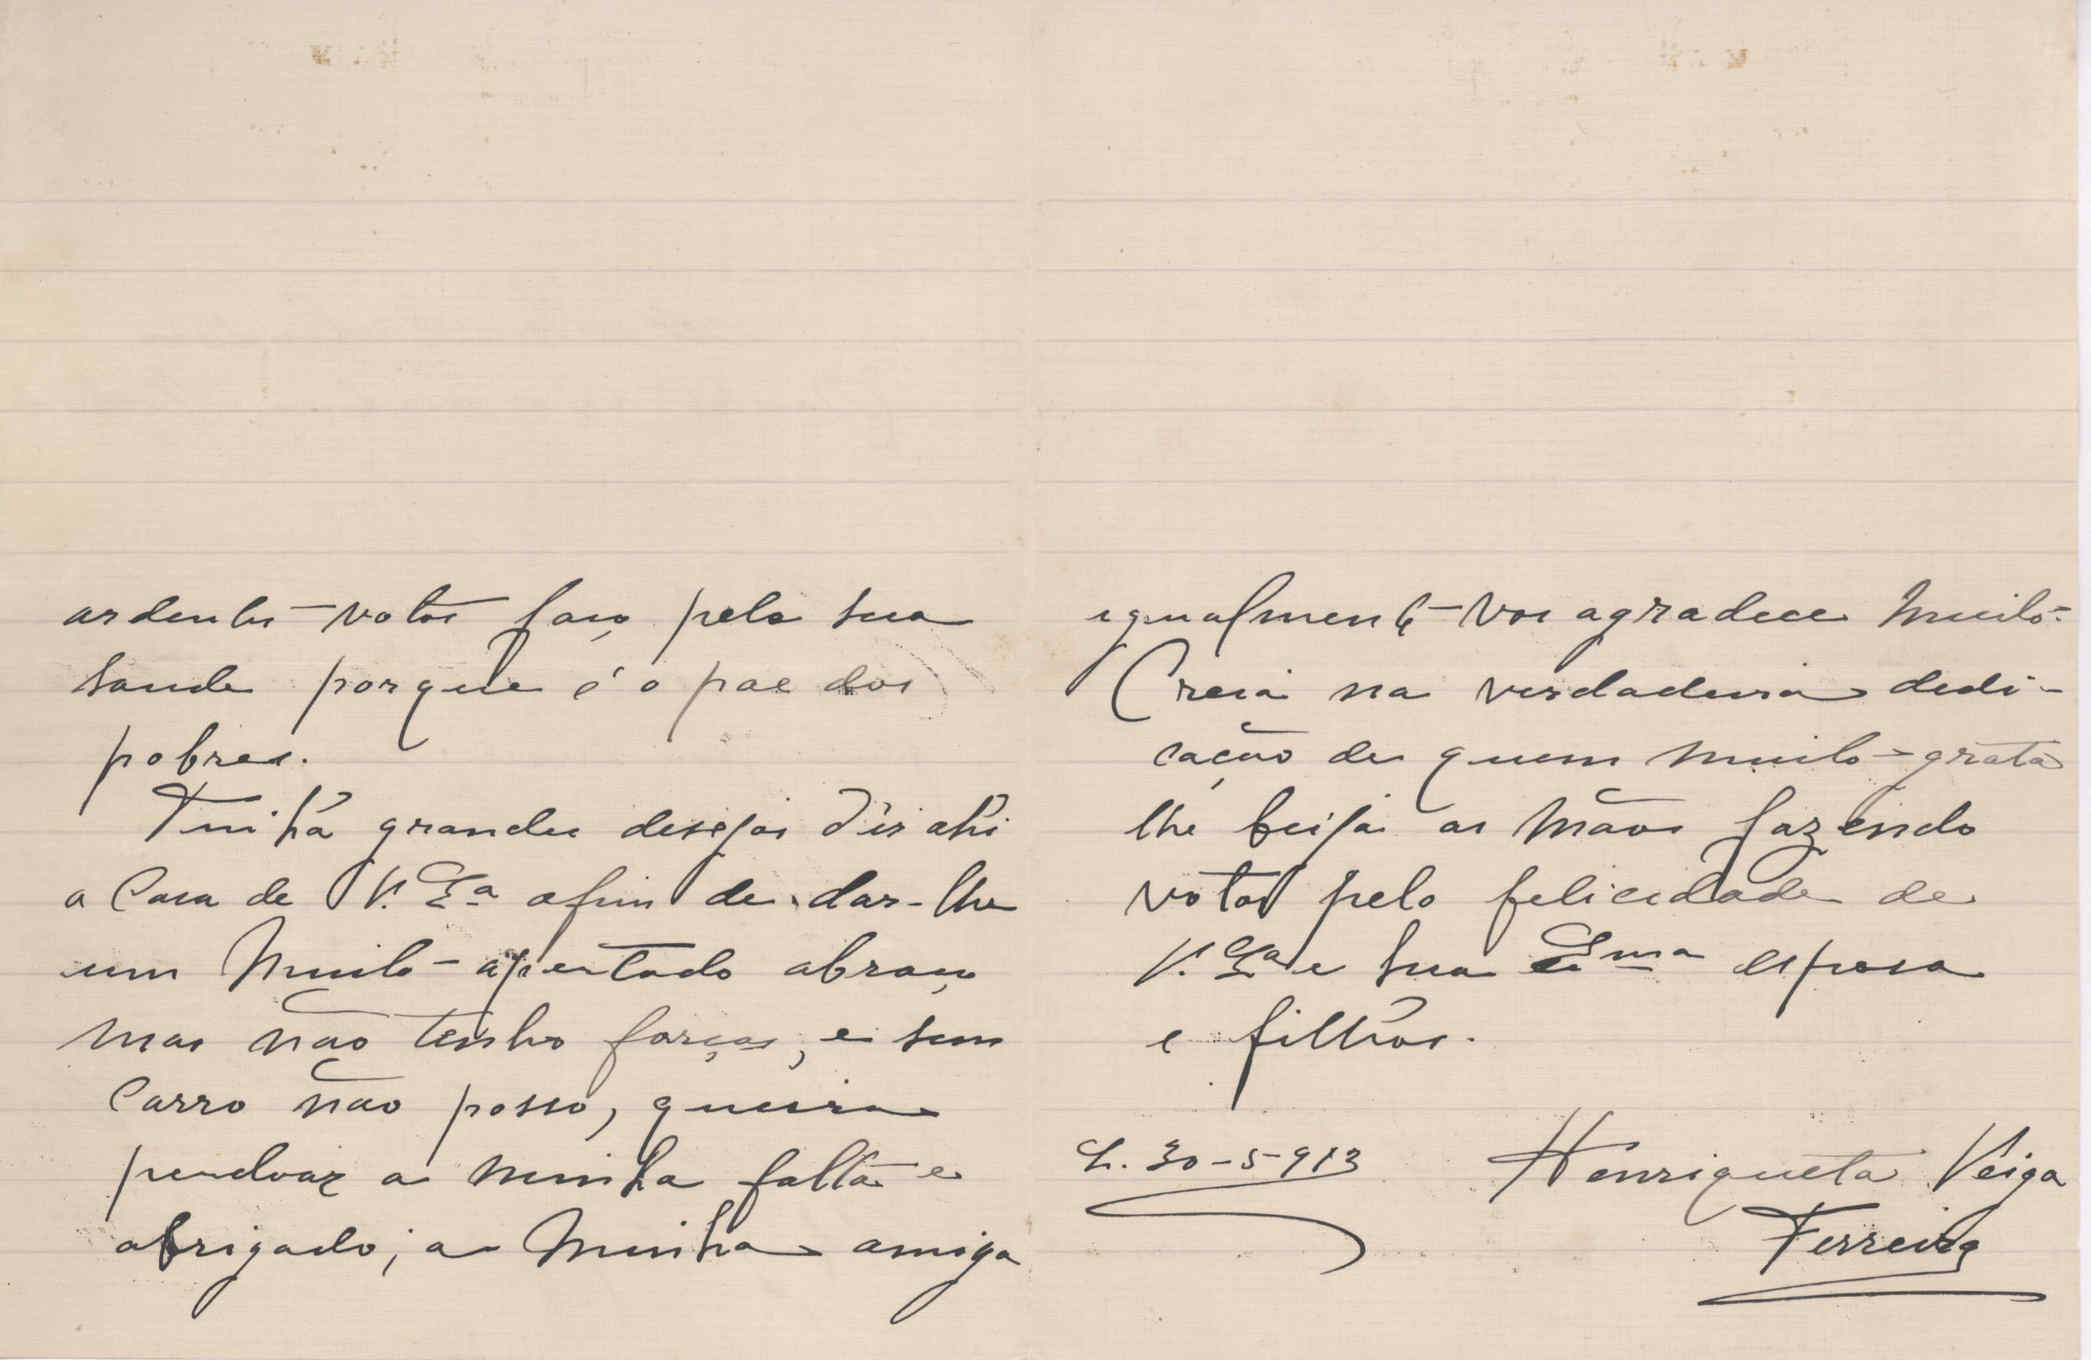 ardentes votos faço pela sua
saude porque é o pae dos
pobres.
Tinha grandes desejos d'ir ahi
a casa de V. Exª afim de dar-lhe
um muito apertado abraço
mas não tenho forças, e sem
carro não posso, queira
perdoar a minha falta e
obrigado, a minha amiga
egualmente vos agradece muito.
Creia na verdadeira dedi-
cação de quem muito grata
lhe beija as mãos fazendo
votos pela felicidade de
V. Exª e sua Exma esposa
e filhos.
L. 30-5-913
Henriqueta Veiga
Ferreira